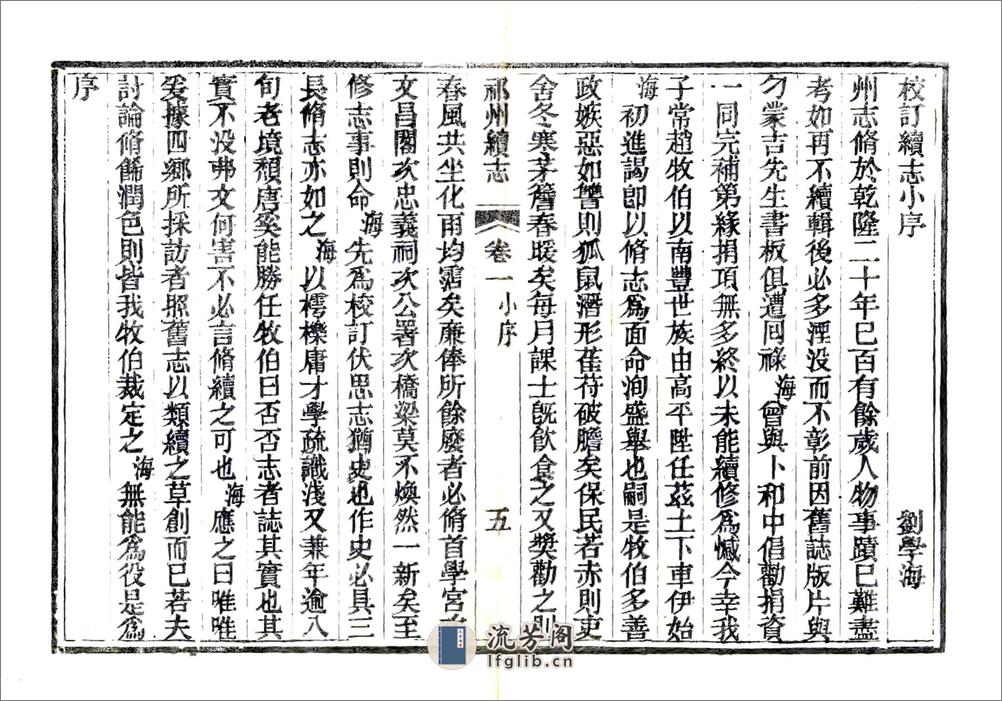 校訂續志小序 劉學海
州志脩於乾隆二十年已百有餘歲人物事蹟已難盡
考如再不續輯後必多湮没而不彰前因舊誌版片與
刁蒙吉先生書板俱遭囘祿海曾與卜和中倡勸捐資
一同完補第緣捐項無多終以未能續修爲憾今幸我
子常趙牧伯以南豐世族由高平陞任茲土下車伊始
海初進謁卽以脩志爲面命洵盛舉也嗣是牧伯多善
政嫉惡如讐則狐鼠潛形萑苻破膽矣保民若赤則吏
舍冬寒茅簷春暖矣每月課士旣飲食之又奬勸之則
祁州續志 卷一 小序 五
春風共坐化雨均霑矣亷俸所餘廢者必脩首學宮次
文昌閣次忠義祠次公署次橋梁莫不煥然一新矣至
修志事則命海先爲校訂伏思志猶史也作史必具三
長脩志亦如之海以樗櫟庸才學疏識淺又兼年逾八
旬老境頽唐奚能勝任牧伯曰否否志者誌其實也其
實不没弗文何害不必言脩續之可也海應之曰唯唯
爰據四鄉所採訪者照舊志以類續之草創而已若夫
討論脩餙潤色則皆我牧伯裁定之海無能爲役是爲
序
流芳阁
lfglib.cn